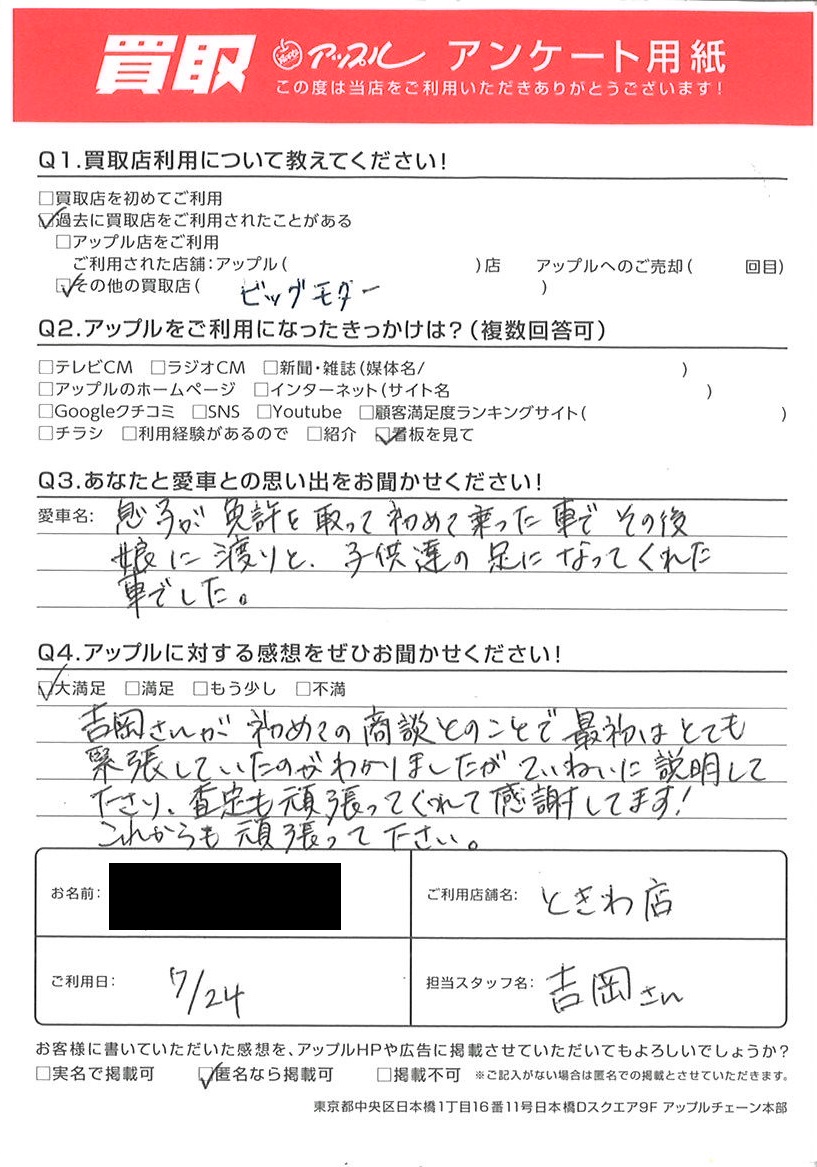 買取 Apple アップル アンケート用紙
この度は当店をご利用いただきありがとうございます!
Q1.買取店利用について教えてください!
□買取店を初めてご利用
☑過去に買取店をご利用されたことがある
□アップル店をご利用
ご利用された店舗:アップル( )店 アップルへのご売却( 回目)
☑その他の買取店( ビッグモーター )
Q2.アップルをご利用になったきっかけは?(複数回答可)
□テレビCM □ラジオCM □新聞・雑誌(媒体名/ )
□アップルのホームページ □インターネット(サイト名 )
□Googleクチコミ □SNS □Youtube □顧客満足度ランキングサイト( )
□チラシ □利用経験があるので □紹介 ☑看板を見て
Q3.あなたと愛車との思い出をお聞かせください!
愛車名: 息子が免許を取って初めて乗った車でその後
娘に渡りと、子供達の足になってくれた
車でした。
Q4.アップルに対する感想をぜひお聞かせください!
☑大満足 □満足 □もう少し □不満
吉岡さんが初めての商談とのことで最初はとても
緊張していたのがわかりましたがていねいに説明して
下さり、査定も頑張ってくれて感謝してます!
これからも頑張って下さい。
お名前: ご利用店舗名: ときわ店
ご利用日: 7/24 担当スタッフ名: 吉岡さん
お客様に書いていただいた感想を、アップルHPや広告に掲載させていただいてもよろしいでしょうか?
□実名で掲載可 ☑匿名なら掲載可 □掲載不可 ※ご記入がない場合は匿名での掲載とさせていただきます。
東京都中央区日本橋1丁目16番11号日本橋Dスクエア9F アップルチェーン本部